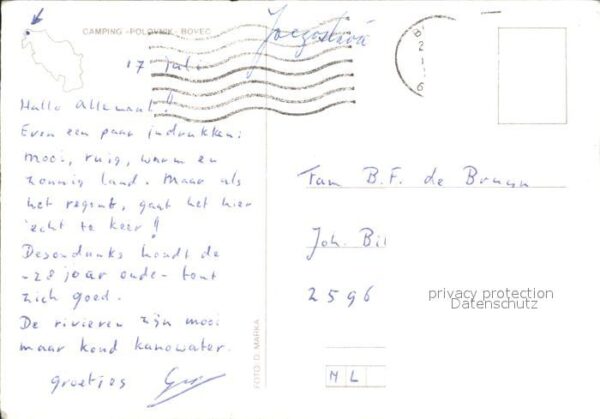 CAMPING "POLOVNIK" BOVEC
17 juli
Hallo allemaal!!
Even een paar indrukken:
mooi, ruig, warm en
zonnig land. Maar als
het regent, gaat het hier
echt te keer!
Desondanks houdt de
-28 jaar oude- tent
zich goed.
De rivieren zijn mooi
maar koud kanowater.
groetjes
FOTO: D. MARKA
Fam B.F. de Bruyn
Joh. Bi
2596
NL
privacy protection
Datenschutz